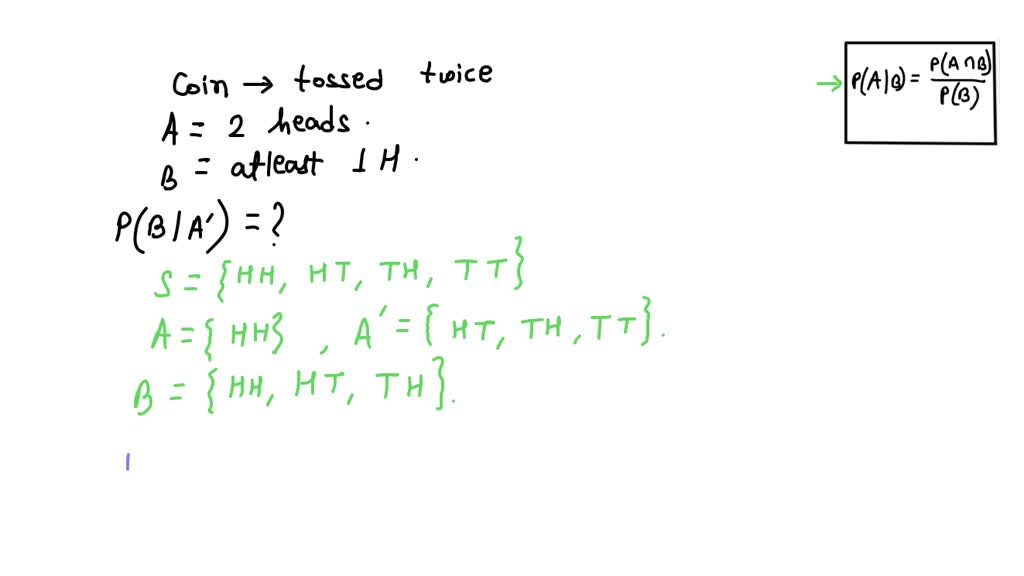 Coin → tossed twice
A = 2 heads.
B = atleast 1 H.
P(B/A') = ?
S = {HH, HT, TH, TT}
A = {HH}, A' = {HT, TH, TT}.
B = {HH, HT, TH}.
→ P(A|B) = P(A∩B)
P(B)